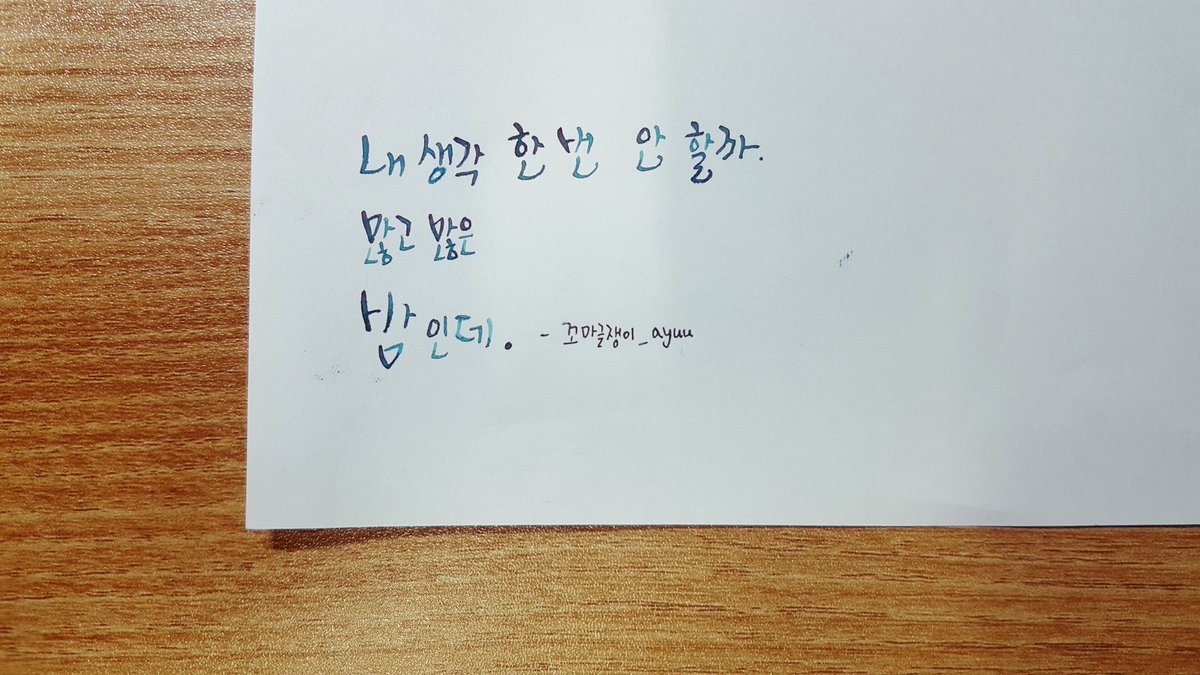 내 생각 한 번 안 할까.
많고 많은
밤인데. - 꼬마글쟁이_ayuu